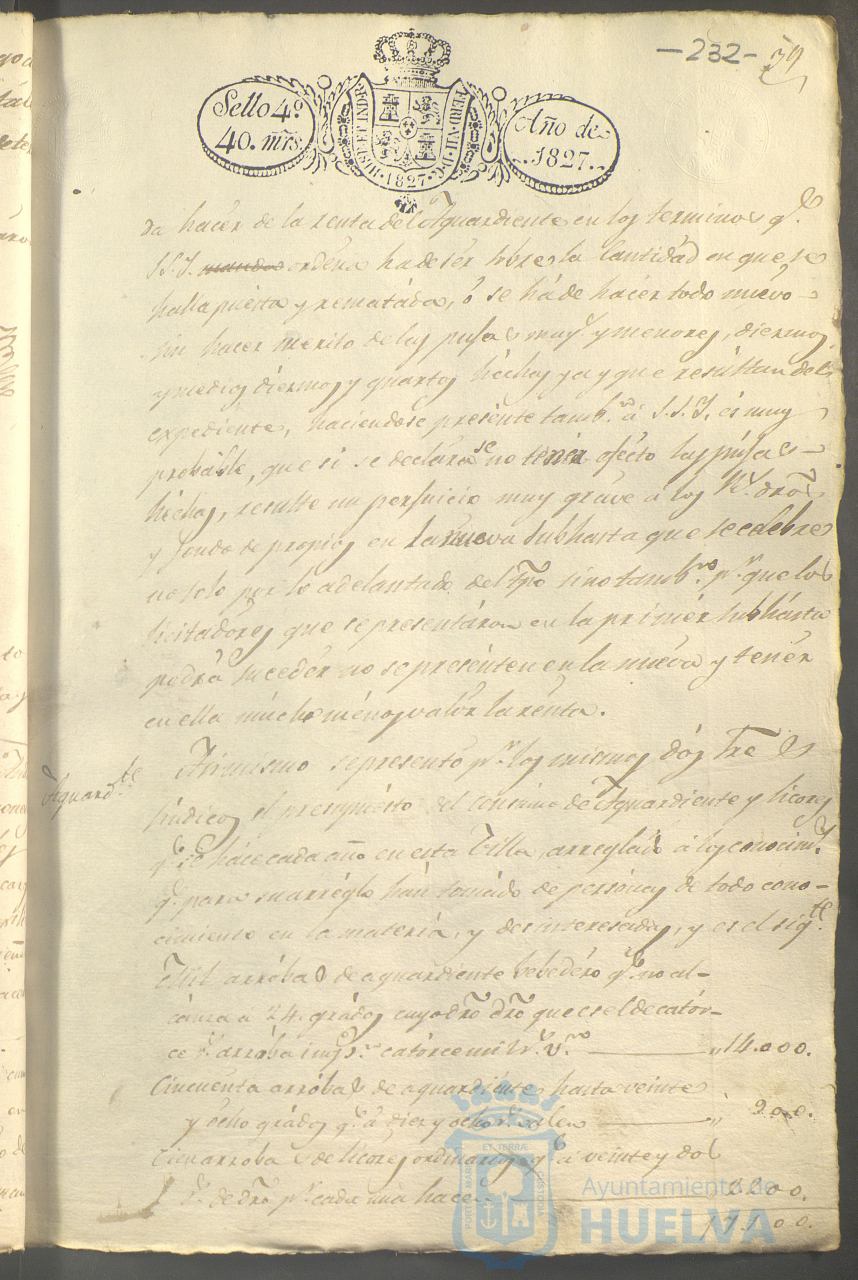 -232- 79
Sello 4º
40. mrs.
HISP. ET IND. R. FERD. VII. D. G.
1827.
Año de
1827.
da hacer de la renta del Aguardiente en los terminos q.e
S.S.I. mandas ordena ha de ser sobre la Cantidad en que se
halla puesta y rematada, ó se há de hacer todo nuevo
sin hacer merito de las pujas may.s y menores, diezmos,
y medios diezmos y quartos hechos ya y que resultan del
expediente, haciendose presente tamb.n á S.S.I. es muy
probable, que si se declarase no tener efecto las pujas
hechas, resulte un perjuicio muy grave á los R.s dros
y fondo de propios en la nueva Subhasta que se celebre
no solo por lo adelantado del tpo sino tamb.n p.r que los
licitadores que se presentaron en la primer subhasta
podrá suceder no se presenten en la nueva y tener
en ella mucho menos valor la renta.
Aguard.te
Asimismo se presentó p.r los mismos dos
Sindicos el presupuesto del consumo de Aguardiente y licores
q.e se hace cada año en esta Villa, arreglado á los conocim.s
q.e para su arreglo hán tomado de personas de todo cono-
cimiento en la materia, y desinteresadas, y es el sig.te
Mil arrobas de aguardiente bebedero q.e no al-
canza a 24. grados cuyo dro que es el de cator-
ce r.s arroba catorce mil r.s v.n 14.000.
Cincuenta arrobas de aguardiente hasta veinte
y ocho grados q.e á diez y ocho r.s valen 900.
Cien arrobas de licores ordinarios q.e á veinte y dos
r.s de dro p.r cada una hacen 2200.
17100.
PORTUS MARIS ET TERRÆ CUSTODIA
Ayuntamiento de
HUELVA